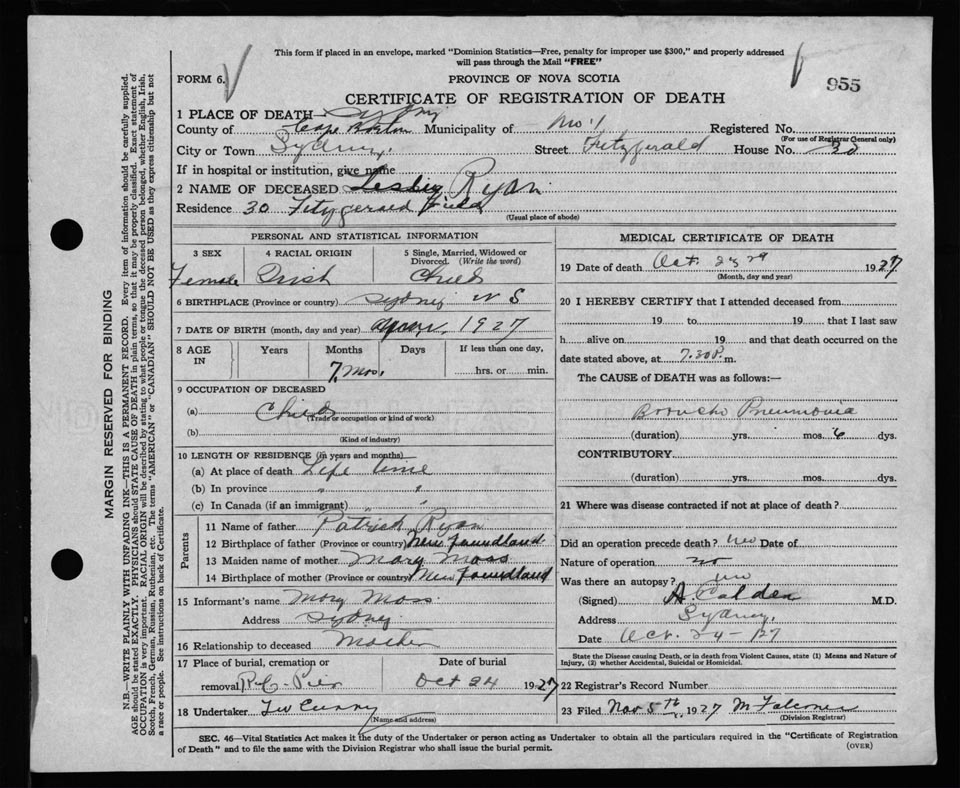 This form if placed in an envelope, marked "Dominion Statistics—Free, penalty for improper use $300," and properly addressed
will pass through the Mail "FREE"
FORM 6.
PROVINCE OF NOVA SCOTIA
955
CERTIFICATE OF REGISTRATION OF DEATH
1 PLACE OF DEATH— Sydney
County of Cape Breton Municipality of No. 1 Registered No.
(For use of Registrar General only)
City or Town Sydney. Street Fitzgerald House No. 30
If in hospital or institution, give name
2 NAME OF DECEASED Lesley Ryan.
Residence 30 Fitzgerald Field
(Usual place of abode)
PERSONAL AND STATISTICAL INFORMATION
3 SEX 4 RACIAL ORIGIN 5 Single, Married, Widowed or
Divorced. (Write the word)
Female Irish Child
6 BIRTHPLACE (Province or country) Sydney N S
7 DATE OF BIRTH (month, day and year) 1927
8 AGE IN Years Months Days If less than one day,
7. Mos. hrs. or min.
9 OCCUPATION OF DECEASED
(a) Child
(Trade or occupation or kind of work)
(b)
(Kind of industry)
10 LENGTH OF RESIDENCE (in years and months)
(a) At place of death Life time
(b) In province " "
(c) In Canada (if an immigrant) " "
Parents
11 Name of father Patrick Ryan
12 Birthplace of father (Province or country) New Foundland
13 Maiden name of mother Mary Moss
14 Birthplace of mother (Province or country) New Foundland
15 Informant's name Mary Moss.
Address Sydney.
16 Relationship to deceased Mother
17 Place of burial, cremation or Date of burial
removal R.C. Pier Oct 24 1927
18 Undertaker Curry
(Name and address)
MEDICAL CERTIFICATE OF DEATH
19 Date of death Oct. 23rd 1927
(Month, day and year)
20 I HEREBY CERTIFY that I attended deceased from
19 to 19 that I last saw
h alive on 19 and that death occurred on the
date stated above, at 7.30 P. m.
The CAUSE of DEATH was as follows:—
Broncho Pneumonia
(duration) yrs. mos. 6 dys.
CONTRIBUTORY
(duration) yrs. mos. dys.
21 Where was disease contracted if not at place of death?
Did an operation precede death? no Date of
Nature of operation no
Was there an autopsy? no
(Signed) A. Calder M.D.
Address Sydney.
Date Oct. 24 - 127
State the Disease causing Death, or in death from Violent Causes, state (1) Means and Nature of
Injury, (2) whether Accidental, Suicidal or Homicidal.
22 Registrar's Record Number
23 Filed Nov 5th, 1927 M Falconer
(Division Registrar)
SEC. 46—Vital Statistics Act makes it the duty of the Undertaker or person acting as Undertaker to obtain all the particulars required in the "Certificate of Registration
of Death" and to file the same with the Division Registrar who shall issue the burial permit.
(OVER)
MARGIN RESERVED FOR BINDING
N.B.—WRITE PLAINLY WITH UNFADING INK—THIS IS A PERMANENT RECORD. Every item of information should be carefully supplied.
AGE should be stated EXACTLY. PHYSICIANS should STATE CAUSE OF DEATH in plain terms, so that it may be properly classified. Exact statement of
OCCUPATION is very important. RACIAL ORIGIN will be described by stating to what people or tongue the deceased person belonged, whether English, Irish,
Scotch, French, German, Russian, Ruthenian, etc. The terms "AMERICAN" or "CANADIAN" SHOULD NOT BE USED as they express citizenship but not
a race or people. See instructions on back of Certificate.